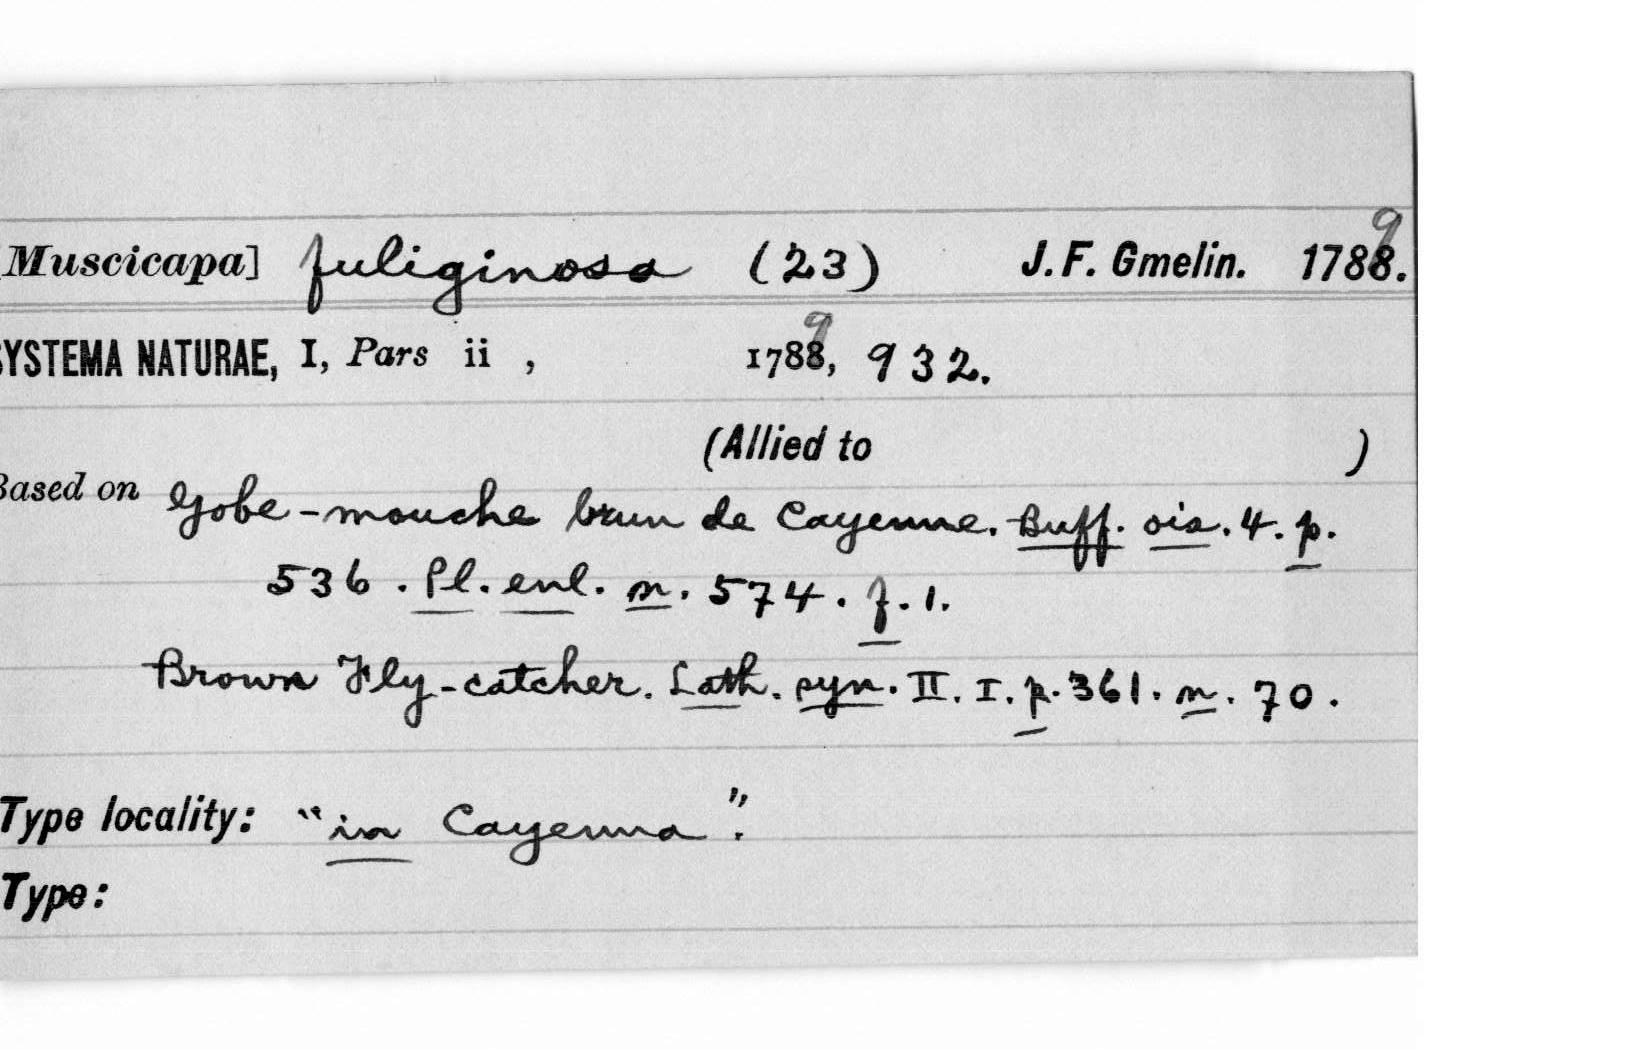 [Muscicapa] fuliginosa (23) J. F. Gmelin. 1788. 9
SYSTEMA NATURAE, I, Pars ii , 1788, 9 932.
(Allied to )
Based on Gobe-mouche brun de Cayenne. Buff. ois. 4. p.
536. Pl. enl. n. 574. f. 1.
Brown Fly-catcher. Lath. syn. II. I. p. 361. n. 70.
Type locality: "in Cayenna".
Type: